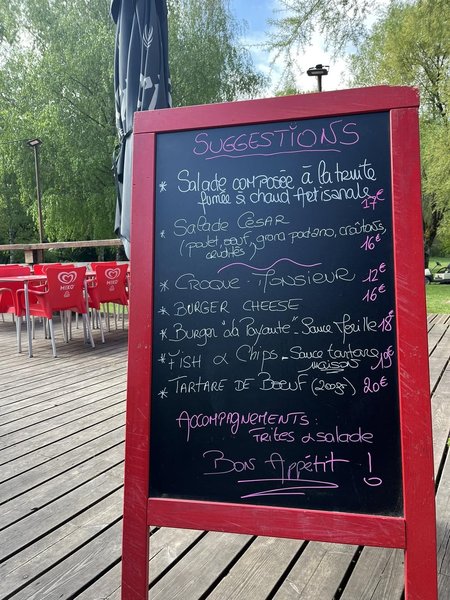 SUGGESTIONS
* Salade composée à la truite
fumée à chaud Artisanale 17€
* Salade CÉSAR
(poulet, oeuf, grana padano, croûtons,
crudités) 16€
* CROQUE-MONSIEUR 12€
* BURGER CHEESE 16€
* Burger "à la Payaute" - Sauce 18€
* FISH & Chips - Sauce tartare 19€
maison
* TARTARE DE BOEUF (200gr) 20€
ACCOMPAGNEMENTS:
Frites & salade
BON APPÉTIT !
MIKO
MIKO